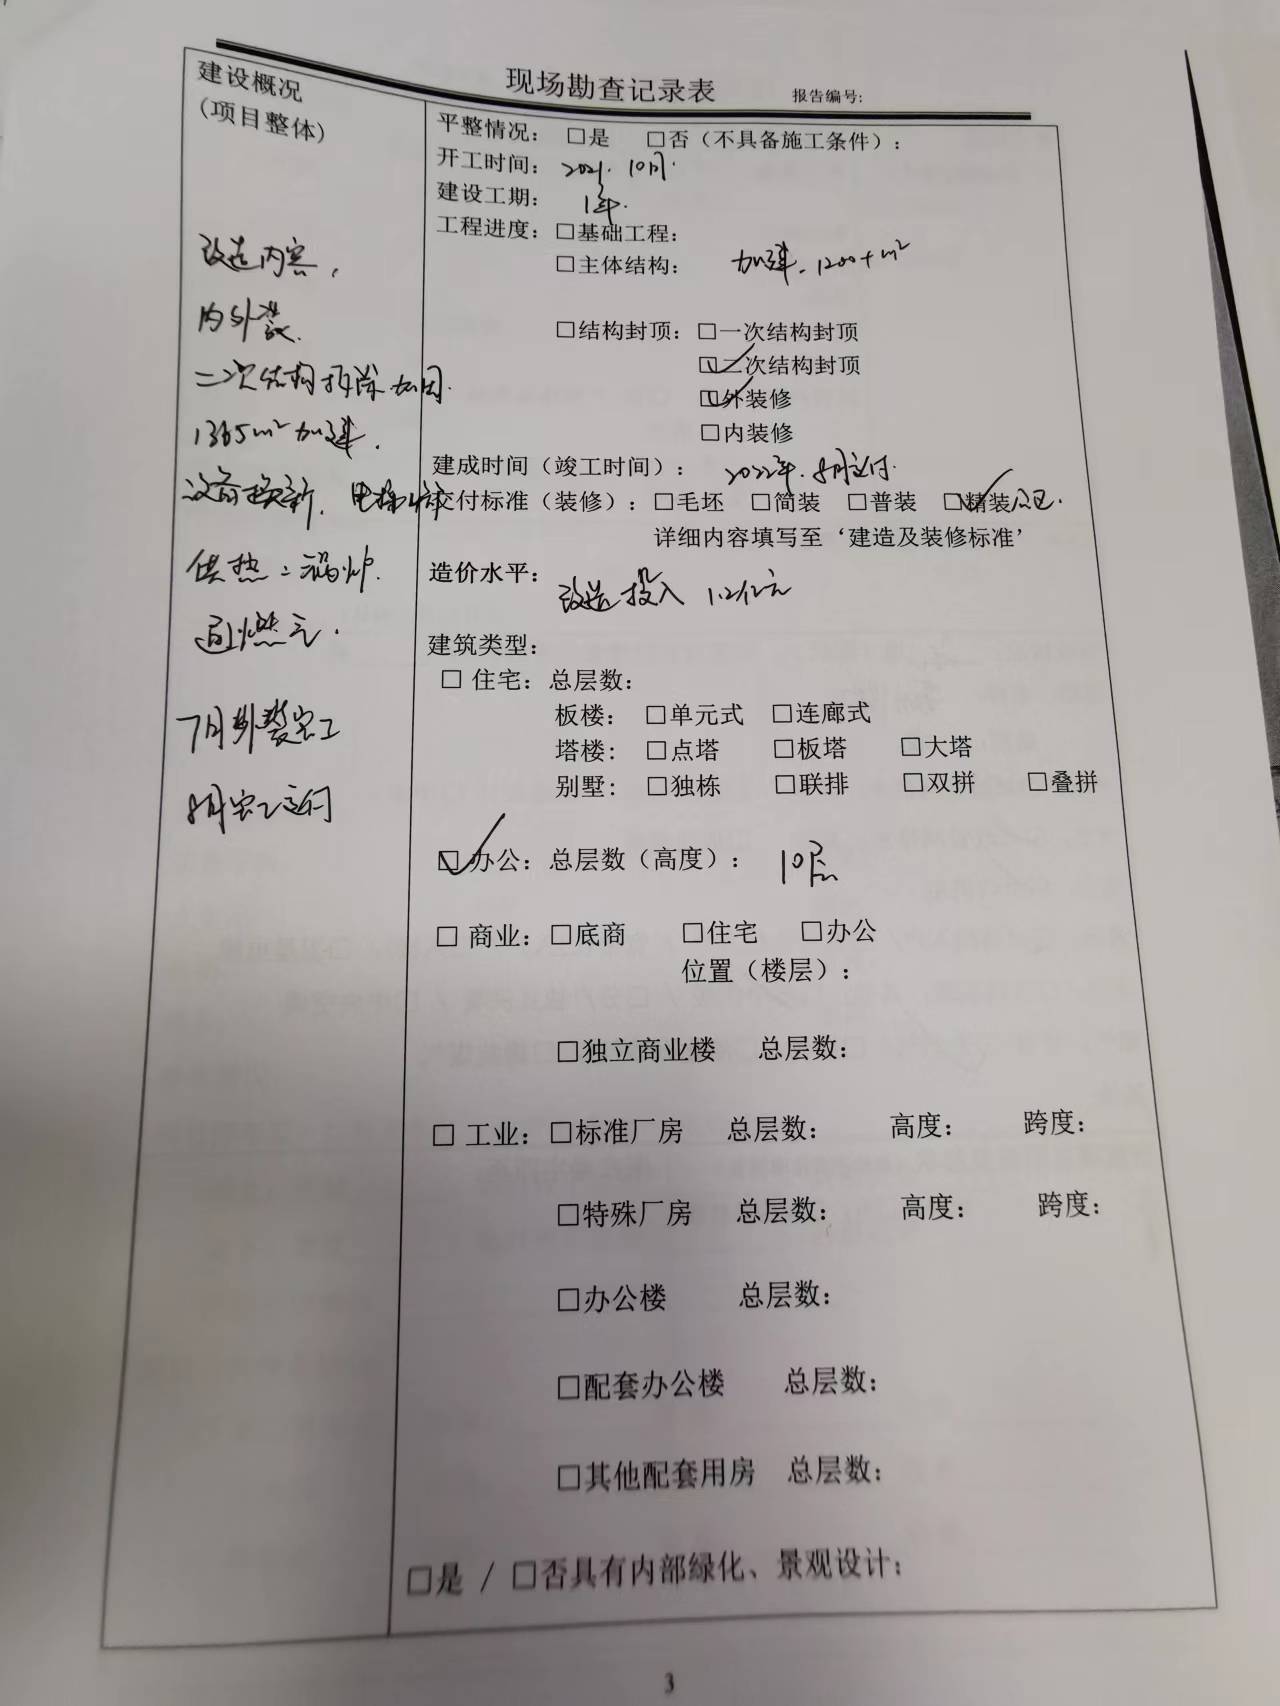 现场勘查记录表 报告编号:
建设概况
(项目整体)
平整情况: □是 □否(不具备施工条件):
开工时间: 2021.10月.
建设工期: 1年.
工程进度: □基础工程:
□主体结构: 加建. 1200+m²
□结构封顶: □一次结构封顶
☑二次结构封顶
☑外装修
□内装修
建成时间(竣工时间): 2022年.8月交付.
交付标准(装修): □毛坯 □简装 □普装 ☑精装
详细内容填写至‘建造及装修标准’
造价水平: 改造投入 1.2亿元
建筑类型:
□ 住宅: 总层数:
板楼: □单元式 □连廊式
塔楼: □点塔 □板塔 □大塔
别墅: □独栋 □联排 □双拼 □叠拼
☑办公: 总层数(高度): 10层
□ 商业: □底商 □住宅 □办公
位置(楼层):
□独立商业楼 总层数:
□ 工业: □标准厂房 总层数: 高度: 跨度:
□特殊厂房 总层数: 高度: 跨度:
□办公楼 总层数:
□配套办公楼 总层数:
□其他配套用房 总层数:
□是 / □否具有内部绿化、景观设计:
改造内容,
内外装.
二次结构拆除加固.
1365m²加建.
设备换新. 电梯
供热:锅炉.
通燃气.
7月外装完工
8月完工交付
3